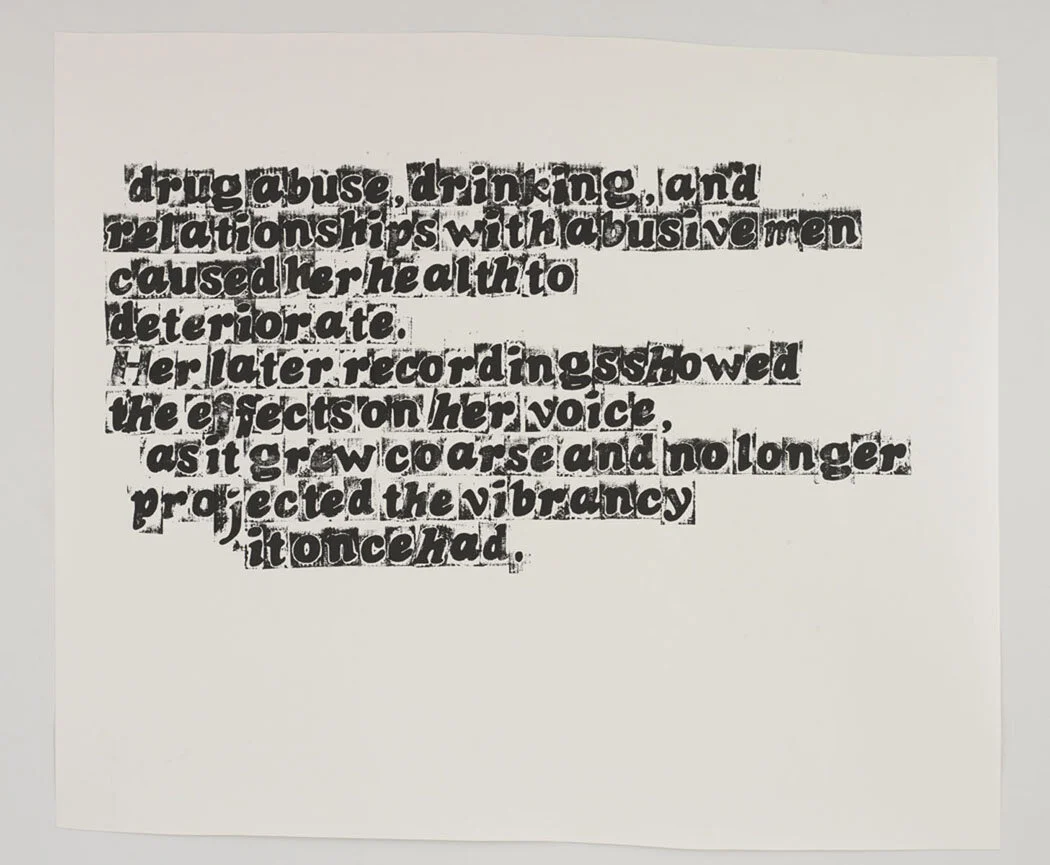 drug abuse, drinking, and
relationships with abusive men
caused her health to
deteriorate.
Her later recordings showed
the effects on her voice,
as it grew coarse and no longer
projected the vibrancy
it once had.